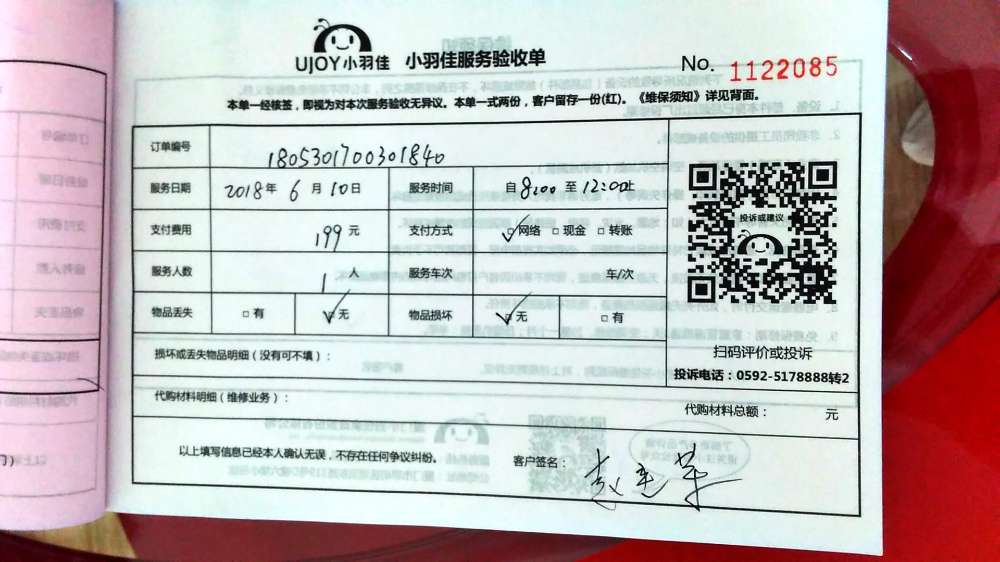 UJOY小羽佳 小羽佳服务验收单
No. 1122085
本单一经核签，即视为对本次服务验收无异议。本单一式两份，客户留存一份(红)。《维保须知》详见背面。
订单编号 1805301700301840
服务日期 2018年 6月 10日 服务时间 自 8:00 至 12:00止
支付费用 199 元 支付方式 网络 现金 转账
服务人数 1 人 服务车次 车/次
物品丢失 有 无 物品损坏 无 有
投诉或建议
扫码评价或投诉
投诉电话：0592-5178888转2
损坏或丢失物品明细（没有可不填）：
代购材料明细（维修业务）： 代购材料总额： 元
以上填写信息已经本人确认无误，不存在任何争议纠纷。 客户签名：